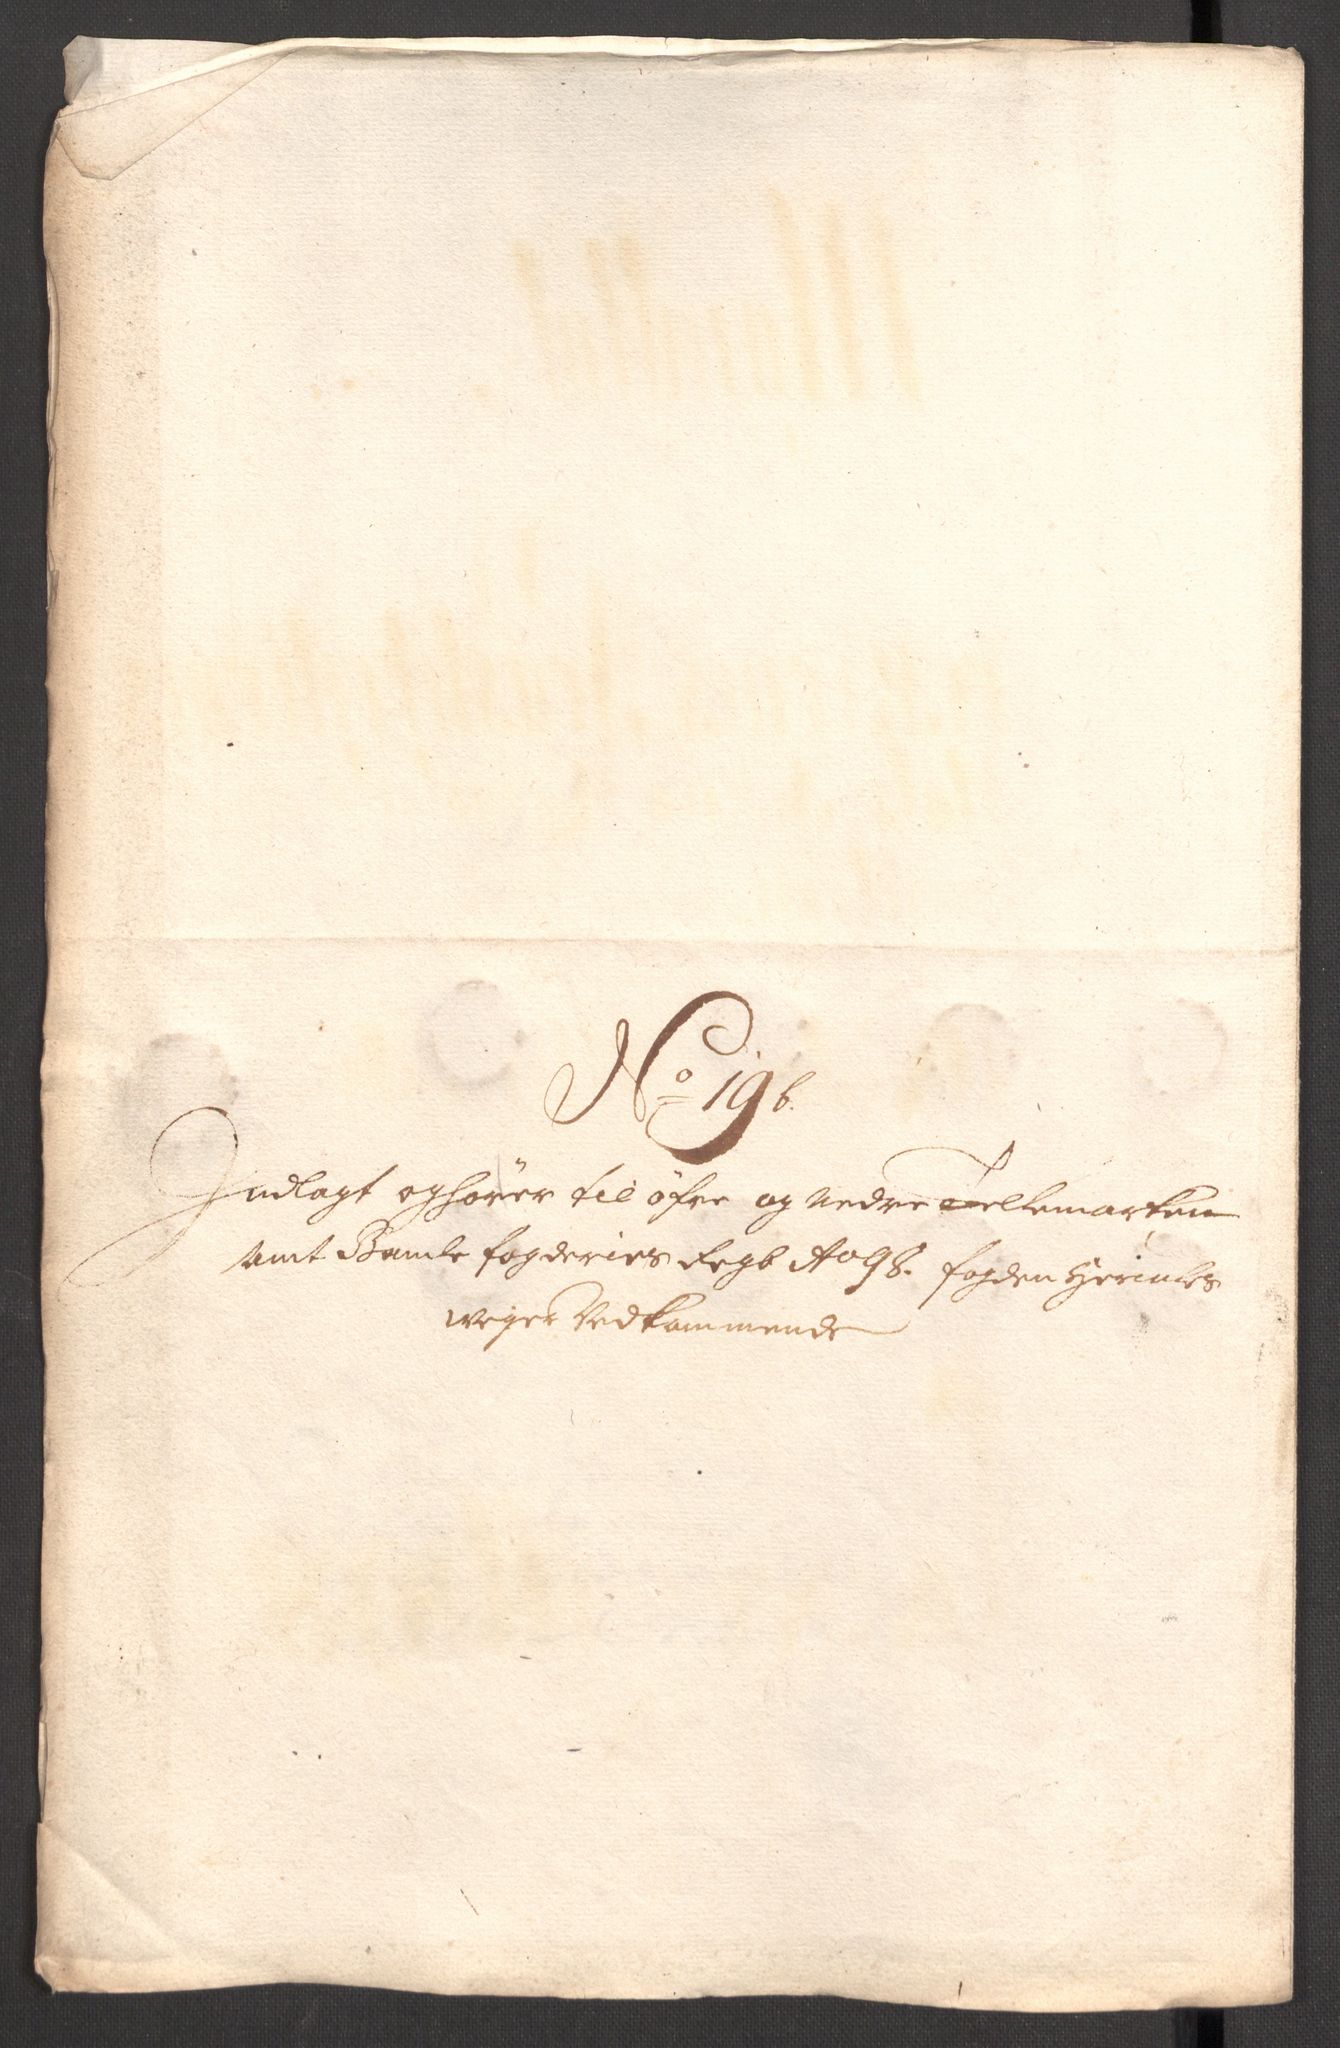 No 19 b.
Indlagt ophører til øfre og Nedre Tellemarken
samt Bamle fogderies Regb Ao 98. fogden
weyer Vedkommende